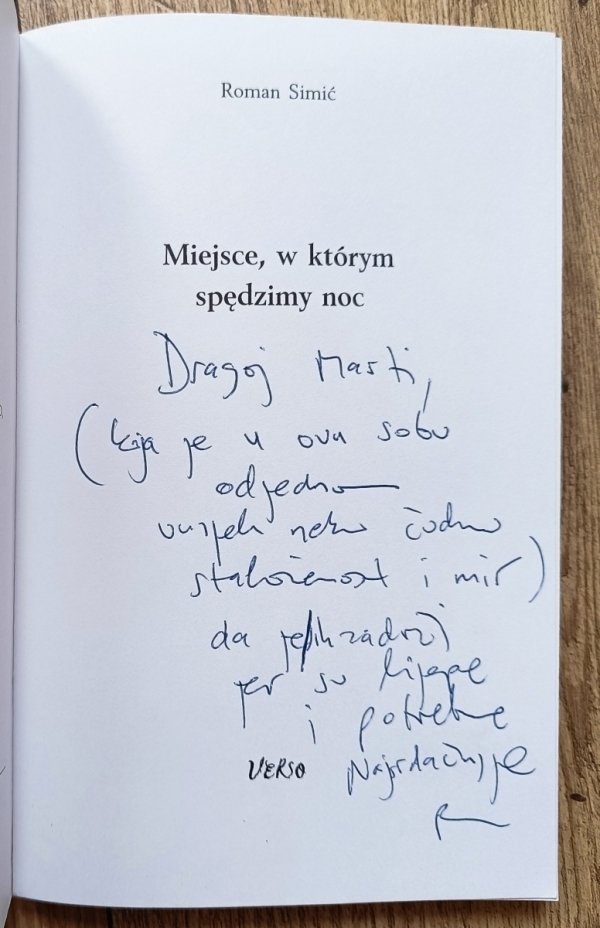 Roman Simić
Miejsce, w którym
spędzimy noc
Dragoj Marti,
(koja je u ovu sobu
odjednom
unijela neku čudnu
staloženost i mir)
da ih zadrži
jer su lijepe
i potrebne
Najsrdačnije
VERSO